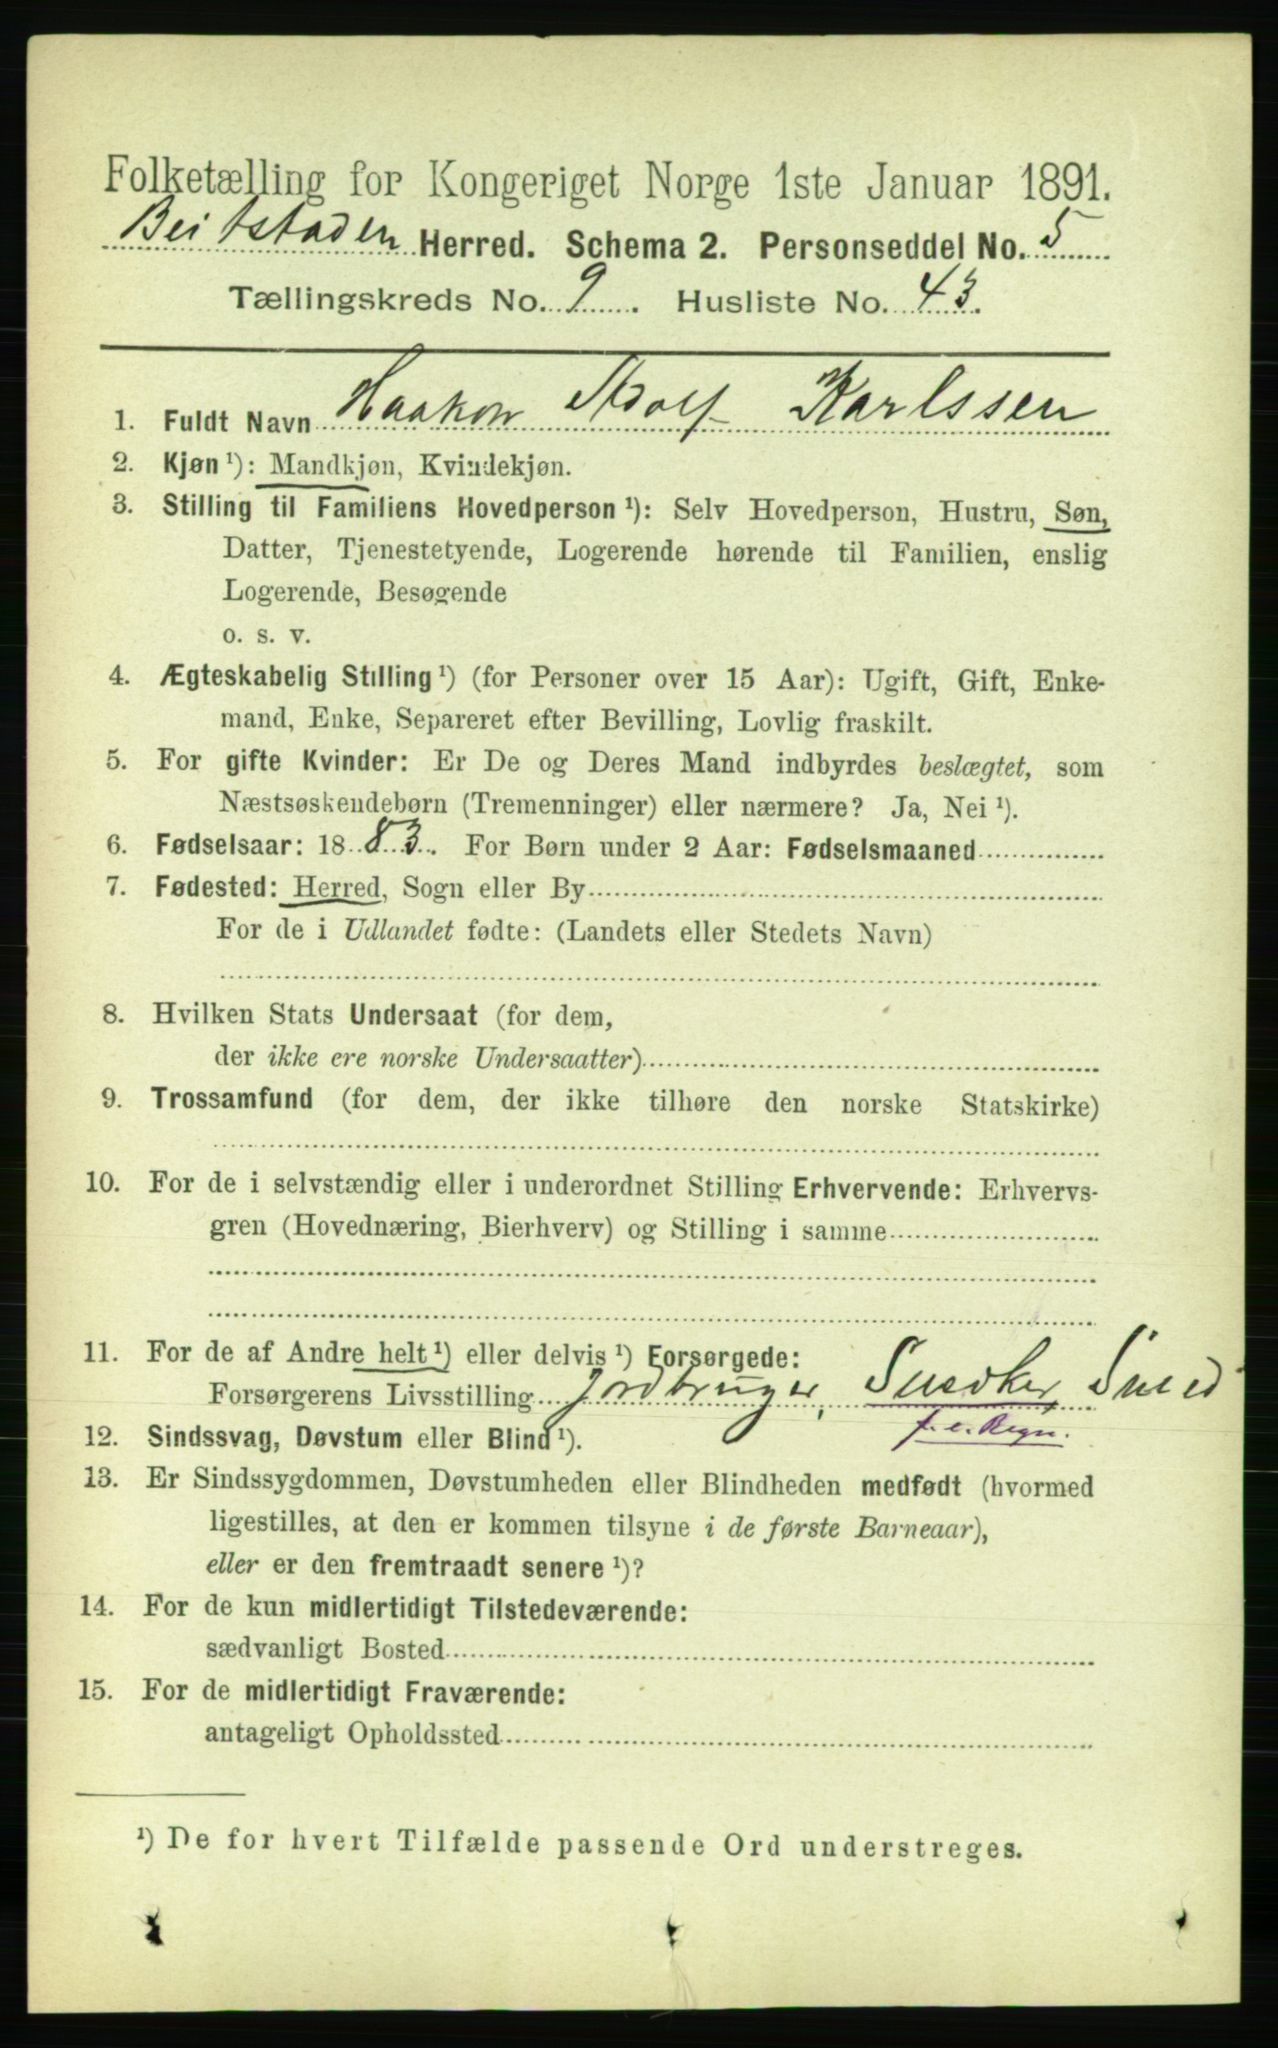 Folketælling for Kongeriget Norge 1ste Januar 1891.
Beitstaden Herred. Schema 2. Personseddel No. 5
Tællingskreds No. 9. Husliste No. 43.
1. Fuldt Navn Haakon Adolf Karlssen
2. Kjøn ¹): Mandkjøn, Kvindekjøn.
3. Stilling til Familiens Hovedperson ¹): Selv Hovedperson, Hustru, Søn,
Datter, Tjenestetyende, Logerende hørende til Familien, enslig
Logerende, Besøgende
o. s. v.
4. Ægteskabelig Stilling ¹) (for Personer over 15 Aar): Ugift, Gift, Enke-
mand, Enke, Separeret efter Bevilling, Lovlig fraskilt.
5. For gifte Kvinder: Er De og Deres Mand indbyrdes beslægtet, som
Næstsøskendebørn (Tremenninger) eller nærmere? Ja, Nei ¹).
6. Fødselsaar: 1883. For Børn under 2 Aar: Fødselsmaaned
7. Fødested: Herred, Sogn eller By
For de i Udlandet fødte: (Landets eller Stedets Navn)
8. Hvilken Stats Undersaat (for dem,
der ikke ere norske Undersaatter)
9. Trossamfund (for dem, der ikke tilhøre den norske Statskirke)
10. For de i selvstændig eller i underordnet Stilling Erhvervende: Erhvervs-
gren (Hovednæring, Bierhverv) og Stilling i samme
11. For de af Andre helt ¹) eller delvis ¹) Forsørgede:
Forsørgerens Livsstilling Jordbruger, Snedker, Smed
f. e. Regn.
12. Sindssvag, Døvstum eller Blind ¹).
13. Er Sindssygdommen, Døvstumheden eller Blindheden medfødt (hvormed
ligestilles, at den er kommen tilsyne i de første Barneaar),
eller er den fremtraadt senere ¹)?
14. For de kun midlertidigt Tilstedeværende:
sædvanligt Bosted
15. For de midlertidigt Fraværende:
antageligt Opholdssted
¹) De for hvert Tilfælde passende Ord understreges.